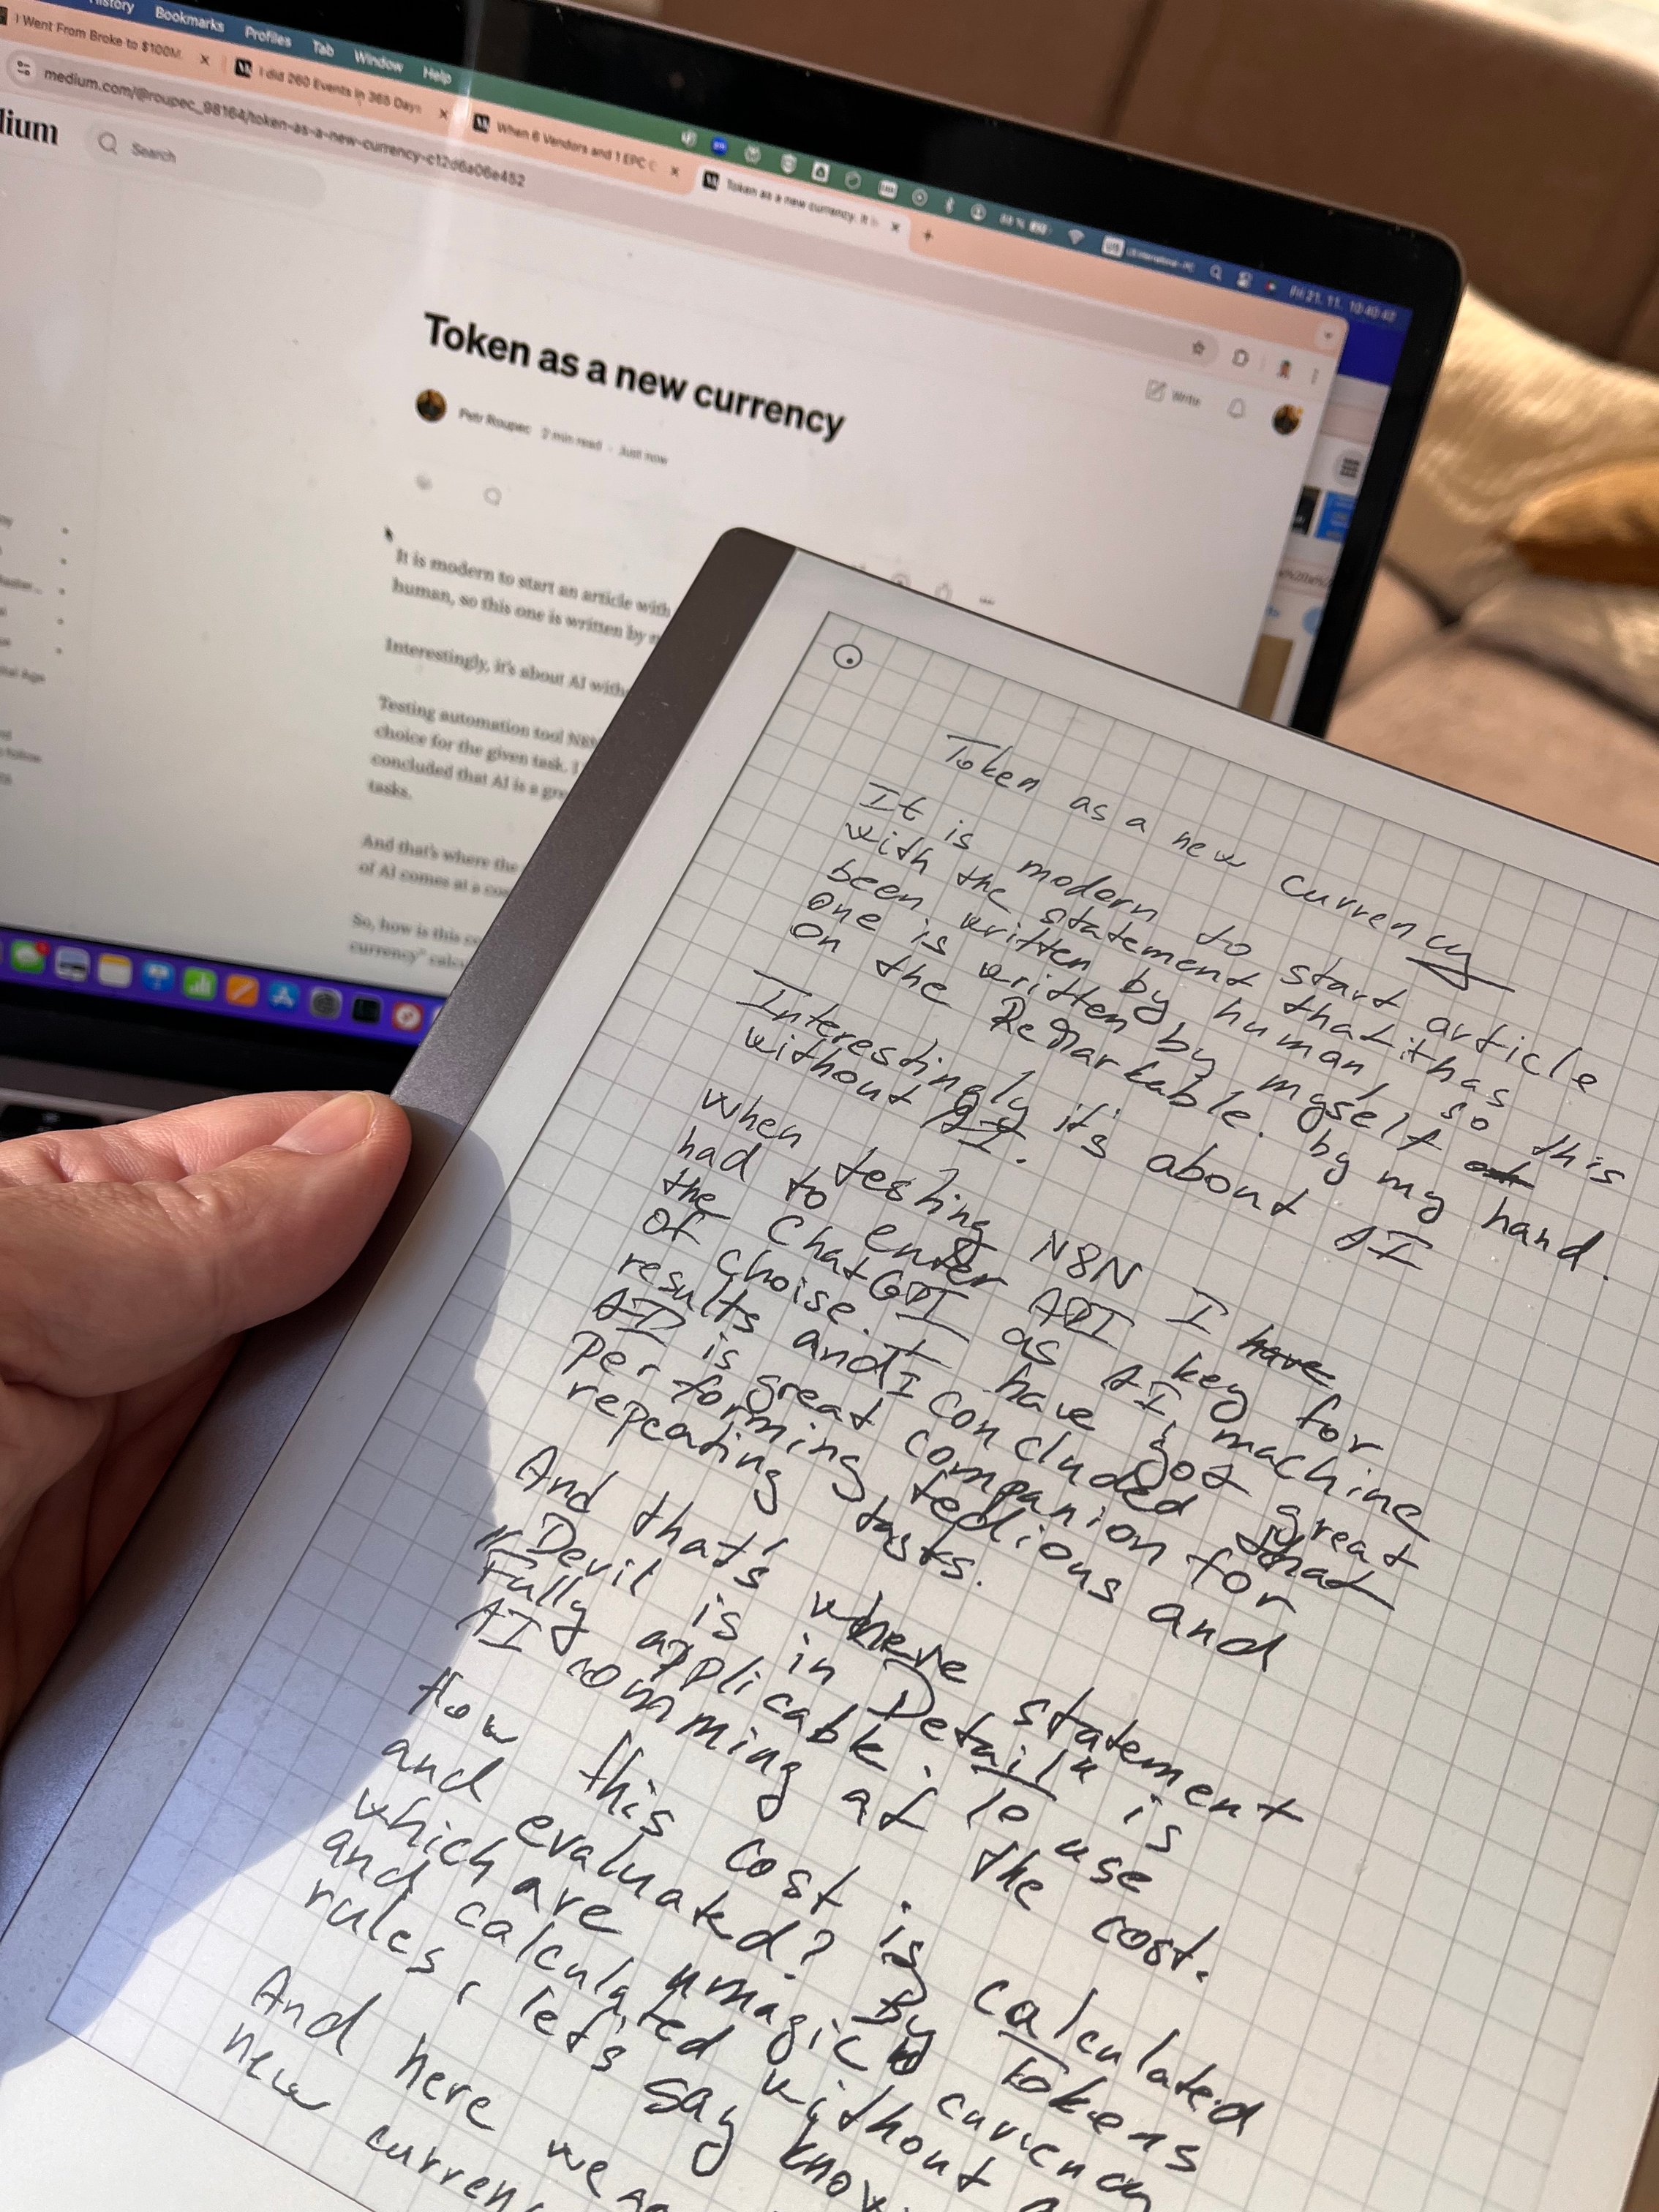 History Bookmarks Profiles Tab Window Help
Fri 21. 11. 10:40:40
I Went From Broke to $100M
I did 260 Events in 365 Days
When 6 Vendors and 1 EPC
Token as a new currency. It
medium.com/@roupec_98164/token-as-a-new-currency-c12d6a06e452
dium
Search
Write
Token as a new currency
Petr Roupec 2 min read · Just now
It is modern to start an article with
human, so this one is written by
Interestingly, it's about AI
Testing automation tool N8N
choice for the given task. I
concluded that AI is a
tasks.
And that's where the
of AI comes at a
So, how is this
currency"
Token as a new currency
It is modern to start article
with the statement that it has
been written by human, so this
one is written by myself
on the ReMarkable. by my hand.
Interestingly it's about AI
without AI.
When testing N8N I have
had to enter API key for
the ChatGPT as AI machine
of choise. I have got great
results and I concluded that
AI is great companion for
performing tedious and
repeating tasks.
And that's where statement
"Devil is in Detail" is
Fully applicable. To use
AI comming at the cost.
How this cost is calculated
and evaluated? By Tokens
which are "magic" currency
and calculated without
rules, let's say
And here we
new